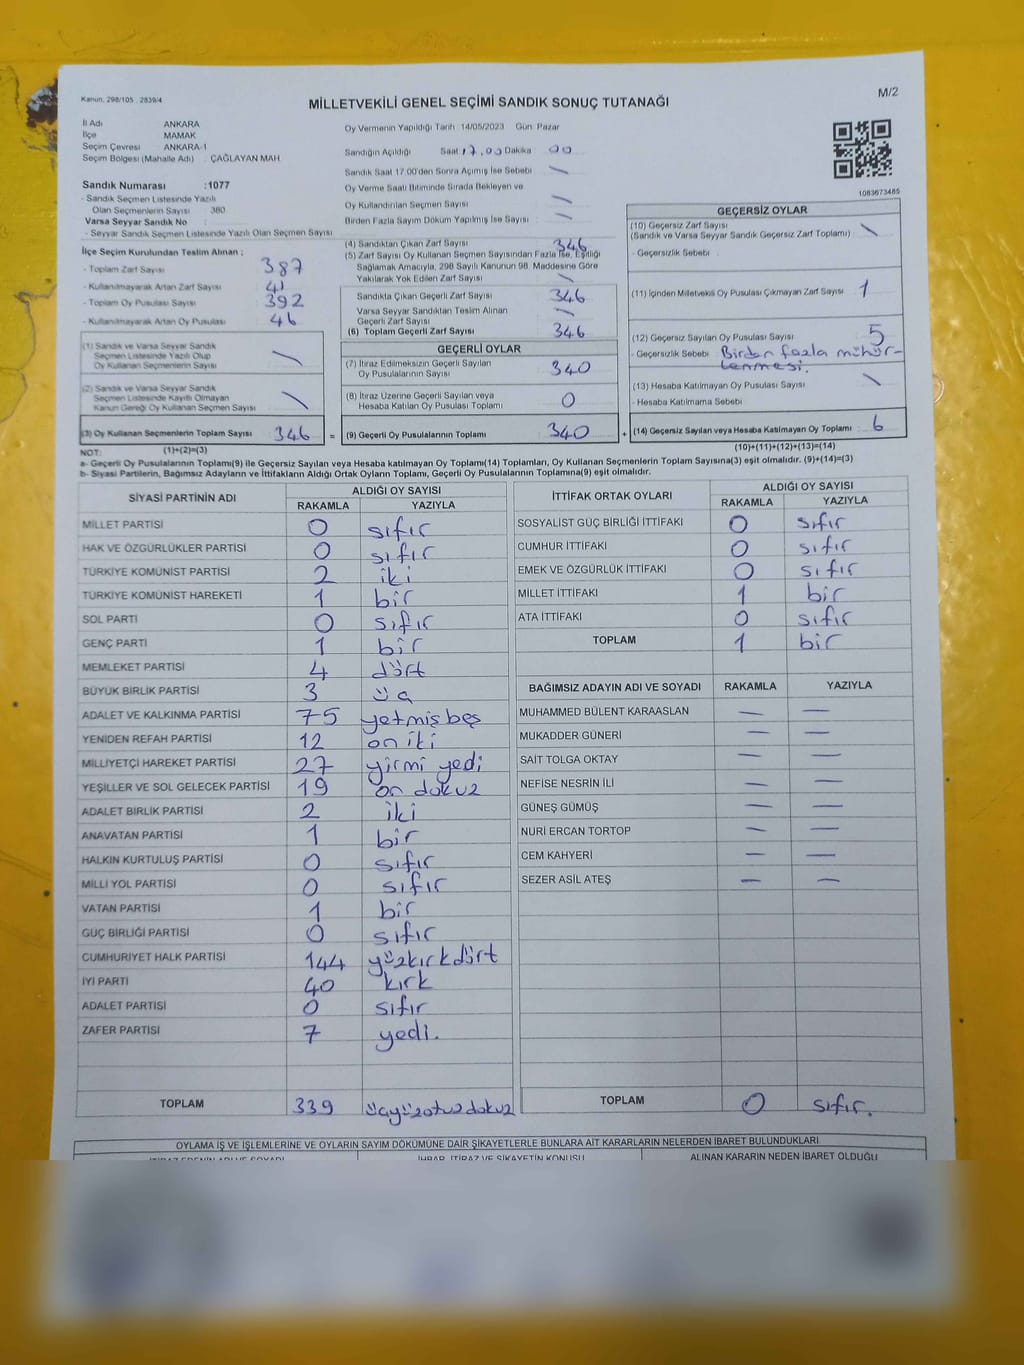 Kanun, 298/105 , 2839/4
MİLLETVEKİLİ GENEL SEÇİMİ SANDIK SONUÇ TUTANAĞI
M/2
İl Adı ANKARA
İlçe MAMAK
Seçim Çevresi ANKARA-1
Seçim Bölgesi (Mahalle Adı) : ÇAĞLAYAN MAH
Sandık Numarası :1077
- Sandık Seçmen Listesinde Yazılı
Olan Seçmenlerin Sayısı : 380
Varsa Seyyar Sandık No
- Seyyar Sandık Seçmen Listesinde Yazılı Olan Seçmen Sayısı
Oy Vermenin Yapıldığı Tarih :14/05/2023 Gün Pazar
Sandığın Açıldığı Saat 17.00 Dakika 00
Sandık Saat 17.00'den Sonra Açmış İse Sebebi —
Oy Verme Saati Bitiminde Sırada Bekleyen ve
Oy Kullandırılan Seçmen Sayısı —
Birden Fazla Sayım Döküm Yapılmış İse Sayısı —
1083673465
İlçe Seçim Kurulundan Teslim Alınan ;
- Toplam Zarf Sayısı 387
- Kullanılmayarak Artan Zarf Sayısı 41
- Toplam Oy Pusulası Sayısı 392
- Kullanılmayarak Artan Oy Pusulası 46
(1) Sandık ve Varsa Seyyar Sandık
Seçmen Listesinde Yazılı Olup
Oy Kullanan Seçmenlerin Sayısı —
(2) Sandık ve Varsa Seyyar Sandık
Seçmen Listesinde Kayıtlı Olmayan
Kanun Gereği Oy Kullanan Seçmen Sayısı —
(3) Oy Kullanan Seçmenlerin Toplam Sayısı 346 =
(4) Sandıktan Çıkan Zarf Sayısı 346
(5) Zarf Sayısı Oy Kullanan Seçmen Sayısından Fazla İse, Eşitliği
Sağlamak Amacıyla, 298 Sayılı Kanunun 98. Maddesine Göre
Yakılarak Yok Edilen Zarf Sayısı —
Sandıkta Çıkan Geçerli Zarf Sayısı 346
Varsa Seyyar Sandıktan Teslim Alınan
Geçerli Zarf Sayısı —
(6) Toplam Geçerli Zarf Sayısı 346
GEÇERLİ OYLAR
(7) İtiraz Edilmeksizin Geçerli Sayılan
Oy Pusulalarının Sayısı 340
(8) İtiraz Üzerine Geçerli Sayılan veya
Hesaba Katılan Oy Pusulası Toplamı 0
(9) Geçerli Oy Pusulalarının Toplamı 340 +
GEÇERSİZ OYLAR
(10) Geçersiz Zarf Sayısı
(Sandık ve Varsa Seyyar Sandık Geçersiz Zarf Toplamı) —
- Geçersizlik Sebebi :
(11) İçinden Milletvekili Oy Pusulası Çıkmayan Zarf Sayısı 1
(12) Geçersiz Sayılan Oy Pusulası Sayısı 5
- Geçersizlik Sebebi : Birden fazla mühür-
lenmesi.
(13) Hesaba Katılmayan Oy Pusulası Sayısı —
- Hesaba Katılmama Sebebi
(14) Geçersiz Sayılan veya Hesaba Katılmayan Oy Toplamı 6
NOT: (1)+(2)=(3) (10)+(11)+(12)+(13)=(14)
a- Geçerli Oy Pusulalarının Toplamı(9) ile Geçersiz Sayılan veya Hesaba katılmayan Oy Toplamı(14) Toplamları, Oy Kullanan Seçmenlerin Toplam Sayısına(3) eşit olmalıdır. (9)+(14)=(3)
b- Siyasi Partilerin, Bağımsız Adayların ve İttifakların Aldığı Ortak Oyların Toplamı, Geçerli Oy Pusulalarının Toplamına(9) eşit olmalıdır.
SİYASİ PARTİNİN ADI ALDIĞI OY SAYISI
RAKAMLA YAZIYLA
MİLLET PARTİSİ 0 sıfır
HAK VE ÖZGÜRLÜKLER PARTİSİ 0 sıfır
TÜRKİYE KOMÜNİST PARTİSİ 2 iki
TÜRKİYE KOMÜNİST HAREKETİ 1 bir
SOL PARTİ 0 sıfır
GENÇ PARTİ 1 bir
MEMLEKET PARTİSİ 4 dört
BÜYÜK BİRLİK PARTİSİ 3 üç
ADALET VE KALKINMA PARTİSİ 75 yetmiş beş
YENİDEN REFAH PARTİSİ 12 on iki
MİLLİYETÇİ HAREKET PARTİSİ 27 yirmi yedi
YEŞİLLER VE SOL GELECEK PARTİSİ 19 on dokuz
ADALET BİRLİK PARTİSİ 2 iki
ANAVATAN PARTİSİ 1 bir
HALKIN KURTULUŞ PARTİSİ 0 sıfır
MİLLİ YOL PARTİSİ 0 sıfır
VATAN PARTİSİ 1 bir
GÜÇ BİRLİĞİ PARTİSİ 0 sıfır
CUMHURİYET HALK PARTİSİ 144 yüzkırkdört
İYİ PARTİ 40 kırk
ADALET PARTİSİ 0 sıfır
ZAFER PARTİSİ 7 yedi.
TOPLAM 339 üçyüzotuzdokuz
İTTİFAK ORTAK OYLARI ALDIĞI OY SAYISI
RAKAMLA YAZIYLA
SOSYALİST GÜÇ BİRLİĞİ İTTİFAKI 0 sıfır
CUMHUR İTTİFAKI 0 sıfır
EMEK VE ÖZGÜRLÜK İTTİFAKI 0 sıfır
MİLLET İTTİFAKI 1 bir
ATA İTTİFAKI 0 sıfır
TOPLAM 1 bir
BAĞIMSIZ ADAYIN ADI VE SOYADI RAKAMLA YAZIYLA
MUHAMMED BÜLENT KARAASLAN — —
MUKADDER GÜNERİ — —
SAİT TOLGA OKTAY — —
NEFİSE NESRİN İLİ — —
GÜNEŞ GÜMÜŞ — —
NURİ ERCAN TORTOP — —
CEM KAHYERİ — —
SEZER ASİL ATEŞ — —
TOPLAM 0 sıfır.
OYLAMA İŞ VE İŞLEMLERİNE VE OYLARIN SAYIM DÖKÜMÜNE DAİR ŞİKAYETLERLE BUNLARA AİT KARARLARIN NELERDEN İBARET BULUNDUKLARI
İTİRAZ EDENİN ADI VE SOYADI İHBAR, İTİRAZ VE ŞİKAYETİN KONUSU ALINAN KARARIN NEDEN İBARET OLDUĞU